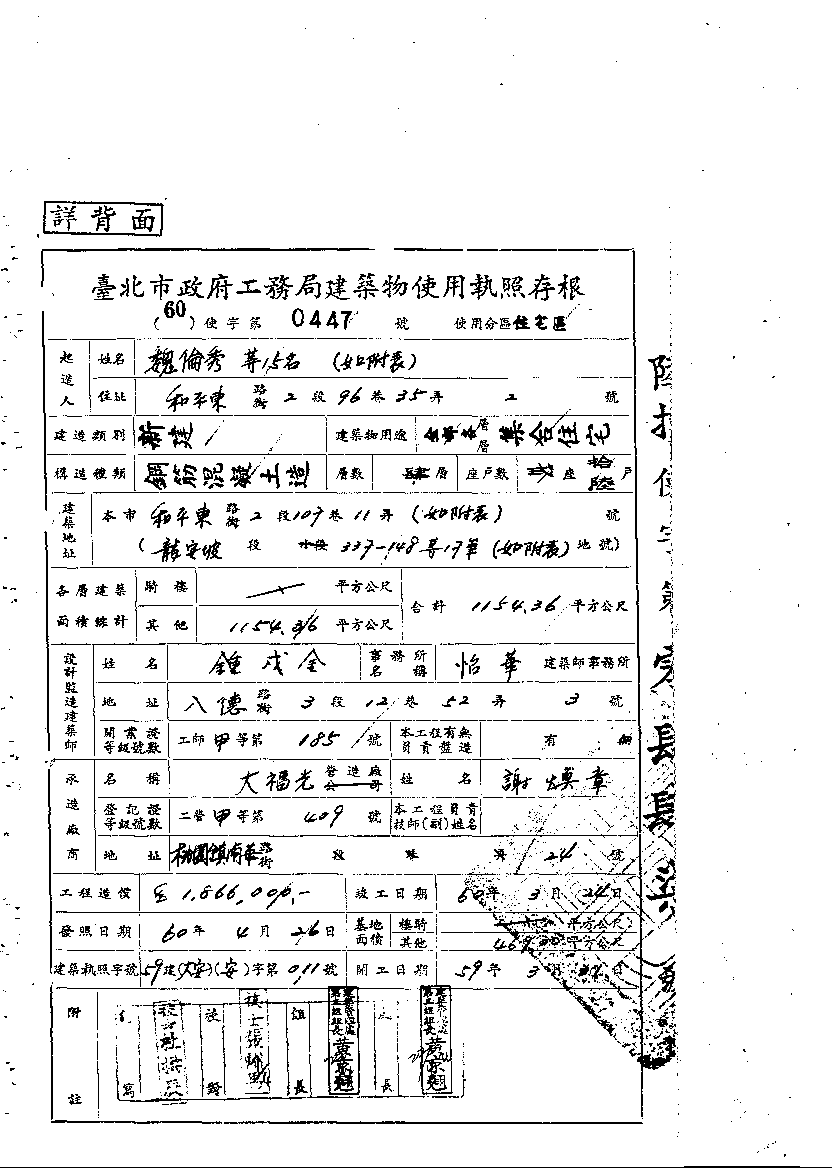 詳背面
臺北市政府工務局建築物使用執照存根
(60)使字第 0447 號 使用分區住宅區
起造人 姓名 魏倫秀 等15名 (如附表)
住址 和平東 路街 2 段 96 巷 35 弄 2 號
建造類別 新建 建築物用途 層層 集合住宅
構造種類 鋼筋混凝土造 層數 肆層 座戶數 座 拾陸戶
建築地址 本市 和平東 路街 2 段 107 巷 11 弄 (如附表) 號
(龍安坡 段 小段 337-148等17筆 (如附表) 地號)
各層建築面積總計 騎樓 平方公尺 合計 1154.36 平方公尺
其他 1154.36 平方公尺
設計監造建築師 姓名 鍾戌全 事務所名稱 怡華 建築師事務所
地址 八德 路街 3 段 12 巷 52 弄 3 號
開業證等級號數 工師 甲 等第 185 號 本工程有無負責監造 有
承造廠商 名稱 大福光 營造廠公司 姓名 謝煥章
登記證等級號數 二營 甲 等第 409 號 本工程負責技師(副)姓名
地址 桃園鎮南華路街 段 巷 弄 24 號
工程造價 1,866,000.- 竣工日期 60年 3月 24日
發照日期 60年 4月 26日 基地面積 樓騎 平方公尺
其他 平方公尺
建築執照字號 59建(大安)(安)字第 011 號 開工日期 59年 3月 日
附註 寫 校對 組長 黃京翹 長 黃京翹